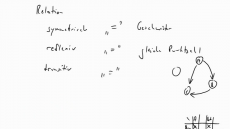 Relation
symmetrisch „ = " Geschwister
reflexiv „ = " gleiche Punktzahl
transitiv „ = "